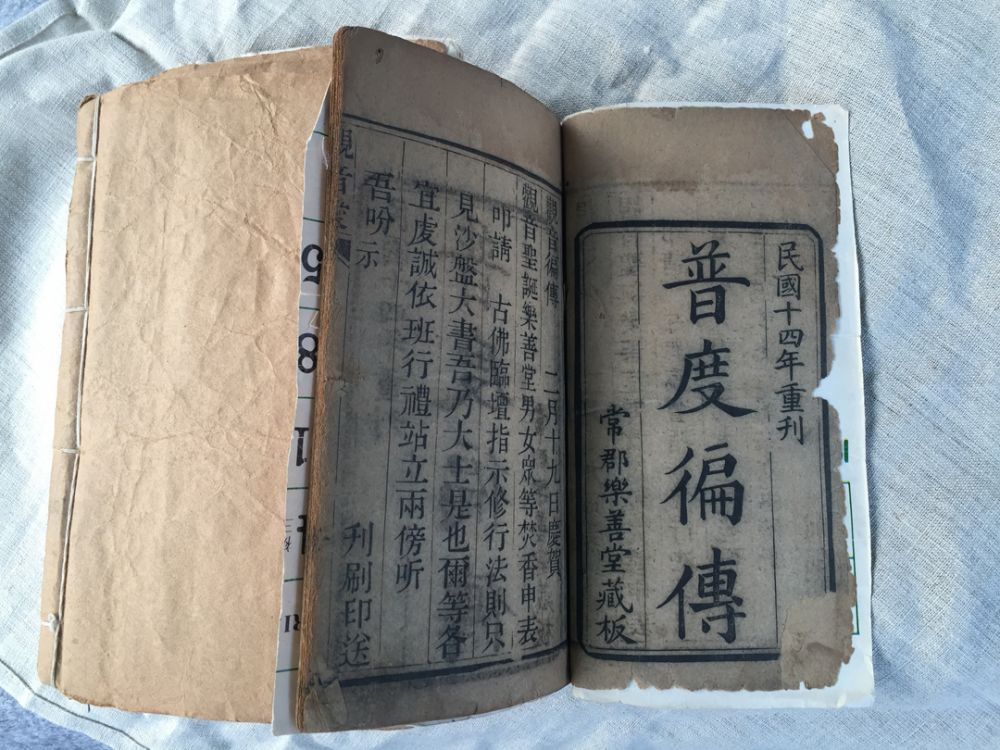 民國十四年重刊
普度徧傳
常郡樂善堂藏板
觀音徧傳 二月十九日慶賀
觀音聖誕樂善堂男女眾等焚香申表
叩請 古佛臨壇指示修行法則只
見沙盤大書吾乃大士是也爾等各
宜虔誠依班行禮站立兩傍听
吾吩示 刋刷印送
觀音
5
8
RI